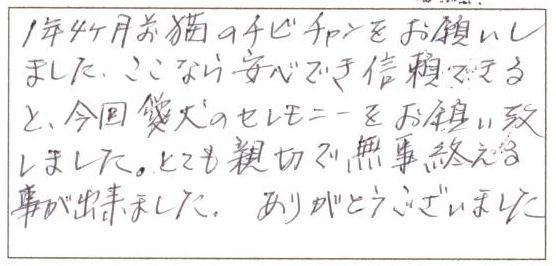 1年4ケ月前猫のチビチャンをお願いし
ました、ここなら安心でき信頼できる
と、今回愛犬のセレモニーをお願い致
しました。とても親切で無事終える
事が出来ました。ありがとうございました